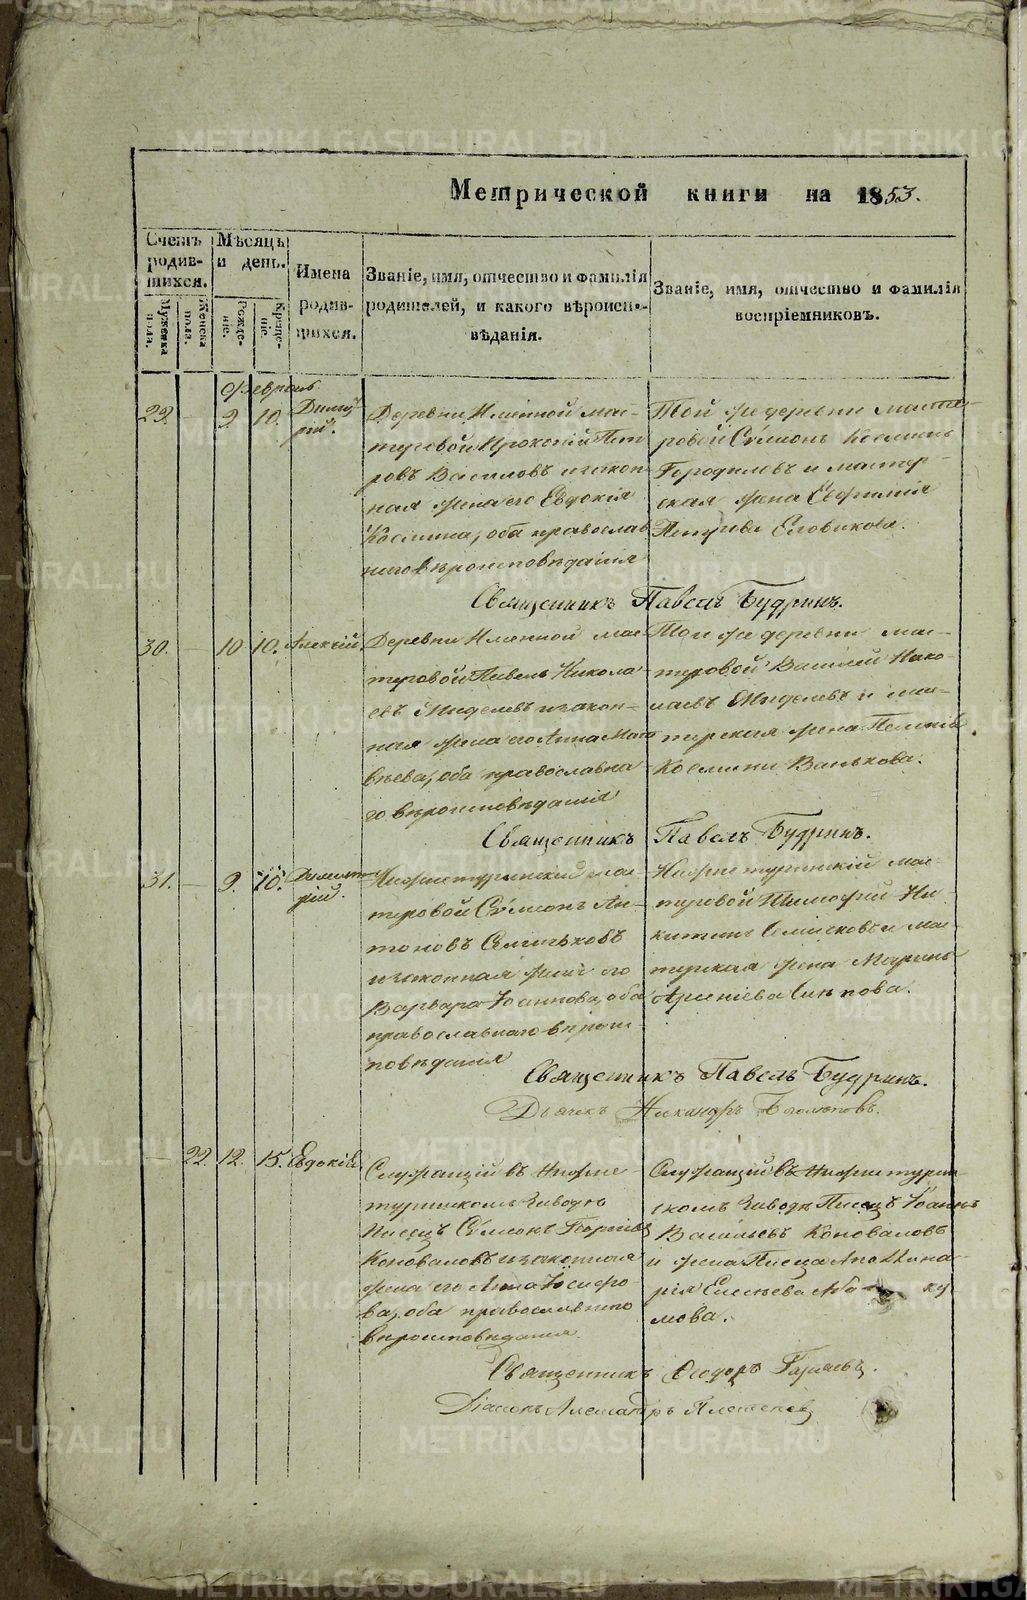 Метрической книги на 1853.
Счетъ родив-шихся.
Мужеска пола.
Женска пола.
Мѣсяцъ и день.
Рожде-ніе.
Креще-ніе.
Имена родив-шихся.
Званіе, имя, отчество и фамилія родителей, и какого вѣроиспо-вѣданія.
Званіе, имя, отчество и фамилія воспріемниковъ.
Февраль
29. — 9 10. Димит-рій.
Деревни Именной мас-
теровой Прокопій Пет
ровъ Василовъ и закон
ная жена его Евдокія
Космина, оба православ
наго вѣроисповѣданія
Той же деревни масте
ровой Сѵмеонъ Косминъ
и мастер-
ская жена Евфимія
Еловикова.
Священникъ Павелъ Будринъ.
30. — 10 10. Алексѣй.
Деревни Именной мас-
теровой Павелъ Никола
евъ и закон-
ная жена его Анна Мат
вѣева, оба православна
го вѣроисповѣданія
Той же деревни мас-
теровой Василій Нико-
лаевъ и мас-
терская жена
Космины Ванькова.
Священникъ Павелъ Будринъ.
31. — 9. 10. Димит-рій.
Нижнетуринскій мас-
теровой Сѵмеонъ Ан-
тоновъ
и законная жена его
Варвара Іоаннова, оба
православнаго вѣроис-
повѣданія
Нижнетуринскій мас-
теровой Тимофей Ни-
китинъ и мас-
терская жена Марина
Арсеніева
Священникъ Павелъ Будринъ.
Дьячекъ Никандръ
— 22. 12. 15. Евдокія.
Служащій въ Нижне-
туринскомъ заводѣ
писецъ Сѵмеонъ Георгіевъ
Коноваловъ и законная
жена его Анна Іосифо-
ва, оба православнаго
вѣроисповѣданія.
Служащій въ Нижнетурин
скомъ заводѣ Писецъ Іоаннъ
Васильевъ Коноваловъ
и жена Писца Аполлина-
рія Елисѣева Або ку
мова.
Священникъ Ѳеодоръ
Діаконъ Александръ
METRIKI.GASO-URAL.RU